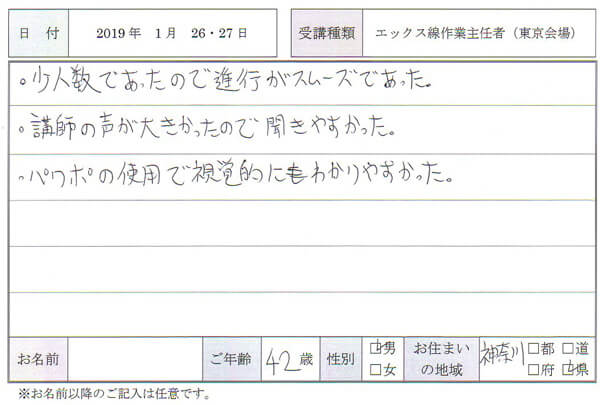 日 付 2019年 1月 26・27日 受講種類 エックス線作業主任者（東京会場）
。少人数であったので進行がスムーズであった。
。講師の声が大きかったので聞きやすかった。
。パワポの使用で視覚的にもわかりやすかった。
お名前 ご年齢 42歳 性別 ☑男 □女 お住まいの地域 神奈川 □都 □道 □府 ☑県
※お名前以降のご記入は任意です。